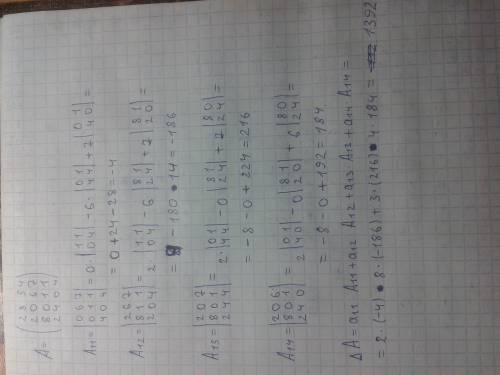 A = (2 8 3 4
2 0 6 7
8 0 1 1
2 4 0 4)
A11 = |0 6 7
0 1 1
4 0 4| = 0·|1 1
0 4| -6·|0 1
4 4| +7|0 1
4 0| =
= 0+24-28=-4
A12 = |2 6 7
8 1 1
2 0 4| = 2·|1 1
0 4| -6|8 1
2 4| +7|8 1
2 0| =
= -180•14=-186
A13 = |2 0 7
8 0 1
2 4 4| = 2·|0 1
4 4| -0|8 1
2 4| +7|8 0
2 4| =
= -8-0+224=216
A14 = |2 0 6
8 0 1
2 4 0| = 2|0 1
4 0| -0|8 1
2 0| +6|8 0
2 4| =
= -8-0+192=184.
ΔA = a11 A11+a12 A12+a13 A12+a14 A14=
= 2·(-4)•8·(-186)+3·(216)•4·184= 1392